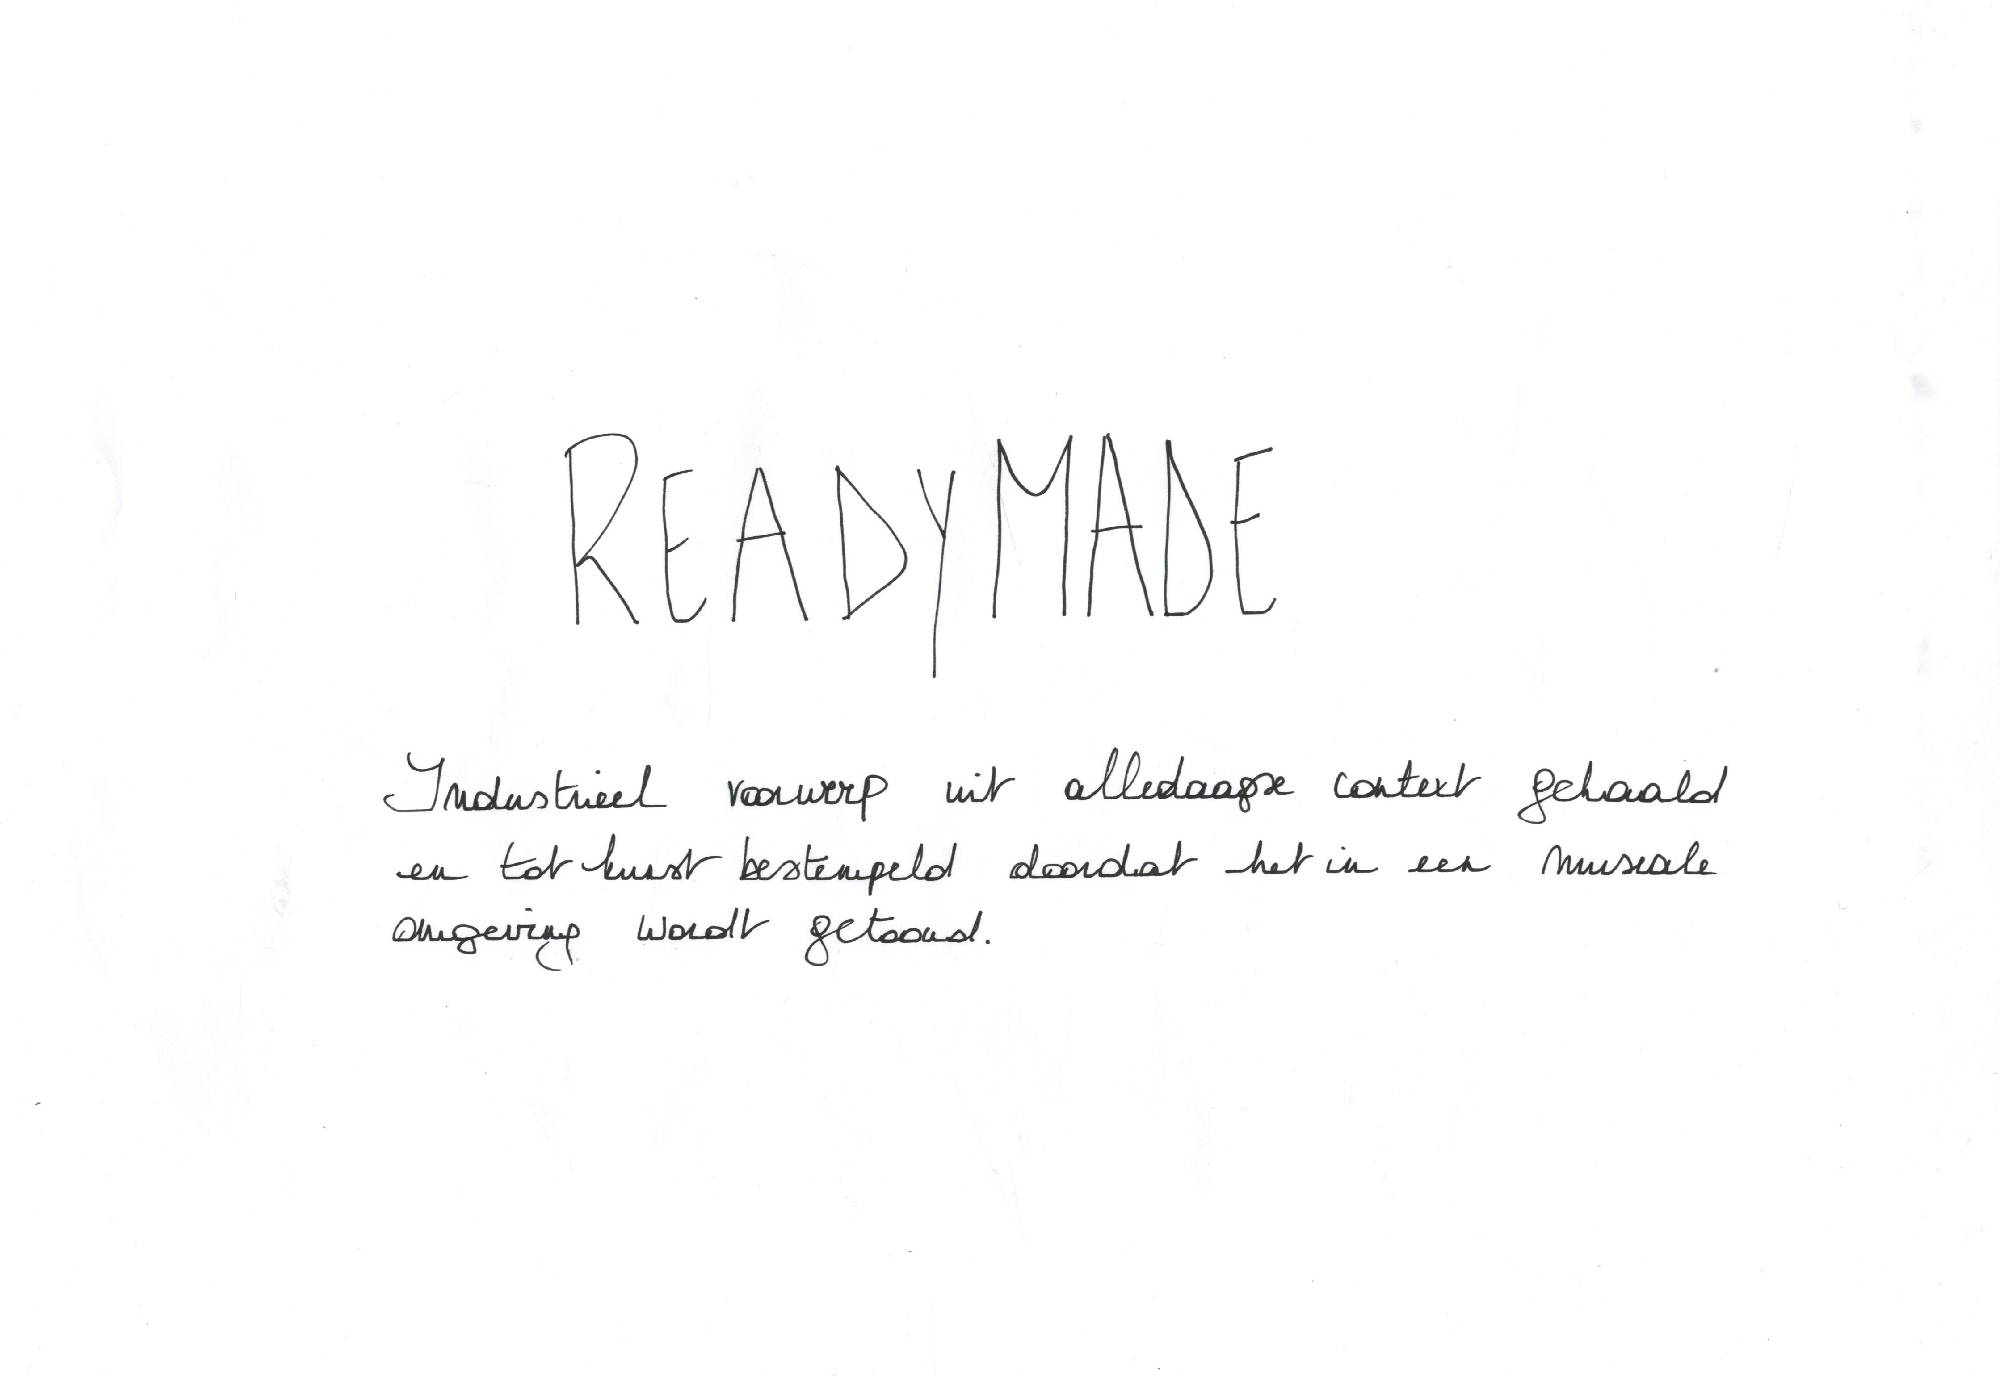 READYMADE
Industrieel voorwerp uit alledaagse context gehaald
en tot kunst bestempeld doordat het in een museale
omgeving wordt getoond.